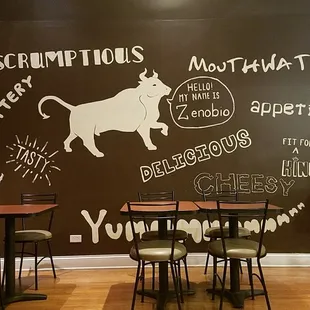 SCRUMPTIOUS
MOUTHWAT
HELLO!
MY NAME IS
Zenobio
appeti
TASTY
DELICIOUS
FIT FOR
A
CHEESY
Yummmmm